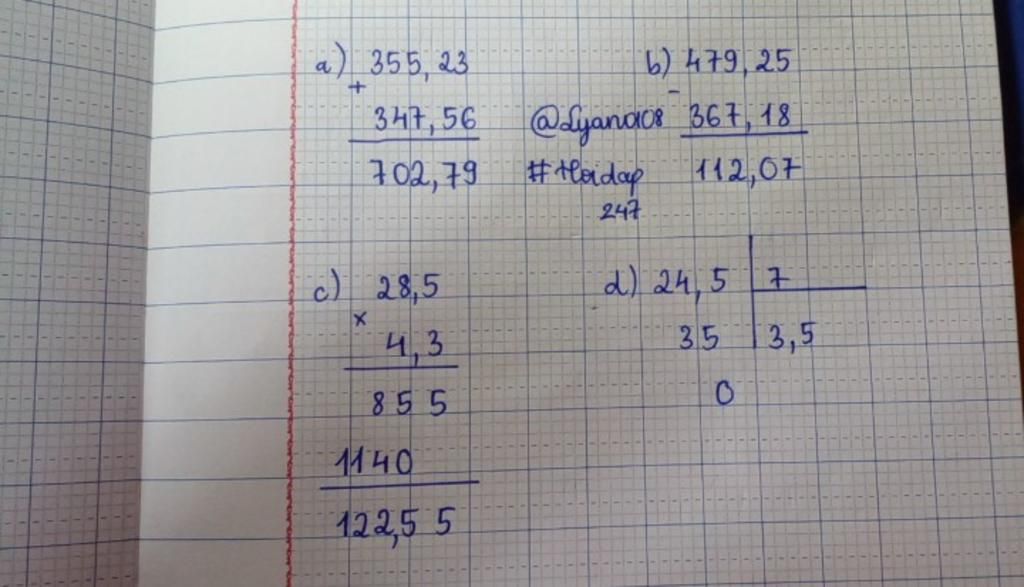 a) 355,23 b) 479,25
+ -
347,56 @Lyana108 367,18
702,79 #Hoidap 112,07
247
c) 28,5 d) 24,5 7
x
4,3 35 3,5
855 0
1140
122,55